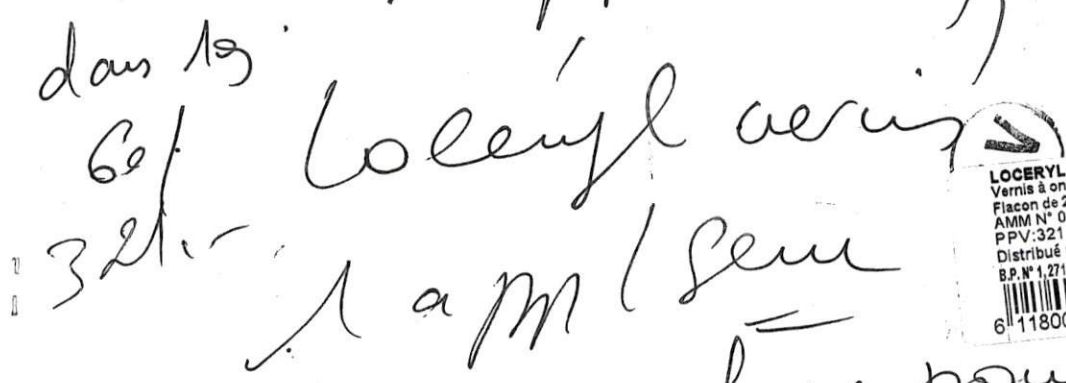 dans les
Locéryl vernis
321.-
1 app / Sem
LOCERYL
Vernis à on
Flacon de 2
AMM N° 0
PPV:321
Distribué
B.P.N° 1,271
6 11800